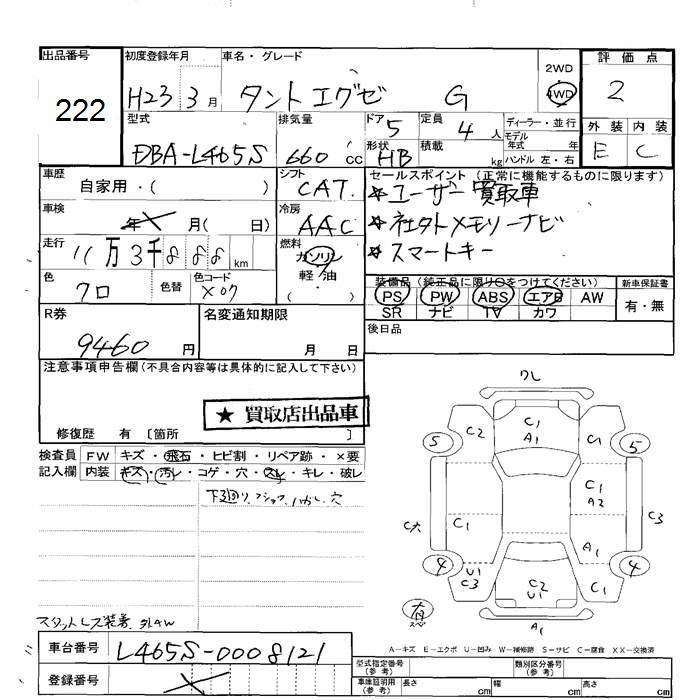 出品番号
222
初度登録年月
H23 3月
車名・グレード
タントエグゼ G
2WD
4WD
評価点
2
外装 内装
E C
型式
DBA-L465S
排気量
660 cc
ドア 5
形状 HB
定員 4 人
積載 kg
ディーラー・並行
モデル年式 年
ハンドル 左・右
車歴
自家用・( )
シフト
CAT
セールスポイント (正常に機能するものに限ります)
☆ユーザー買取車
☆社外メモリーナビ
☆スマートキー
車検
年 月( 日)
冷房
AAC
走行
11万3千888 km
燃料
ガソリン
軽油
( )
色
クロ
色替
色コード
X07
装備品 (純正品に限り○をつけてください)
PS PW ABS エアB AW
SR ナビ TV カワ
新車保証書
有・無
R券
9460 円
名変通知期限
月 日
後日品
注意事項申告欄(不具合内容等は具体的に記入して下さい)
★ 買取店出品車
修復歴 有 〔箇所 〕
検査員記入欄
FW キズ・飛石・ヒビ割・リペア跡・×要
内装 キズ・汚レ・コゲ・穴・スレ・キレ・破レ
下廻り
穴
スタットレス装着
ワレ
C1
A1
C2
C1
5
5
C1
A2
C1
C大
C3
A1
4
4
U1
C3
C2
U1
C1
A1
有
スペ
A-キズ E-エクボ U-凹み W-補修跡 S-サビ C-腐食 XX-交換済
車台番号
L465S-0008121
登録番号
型式指定番号(参考)
類別区分番号(参考)
車庫証明用(参考)
長さ cm 幅 cm 高さ cm